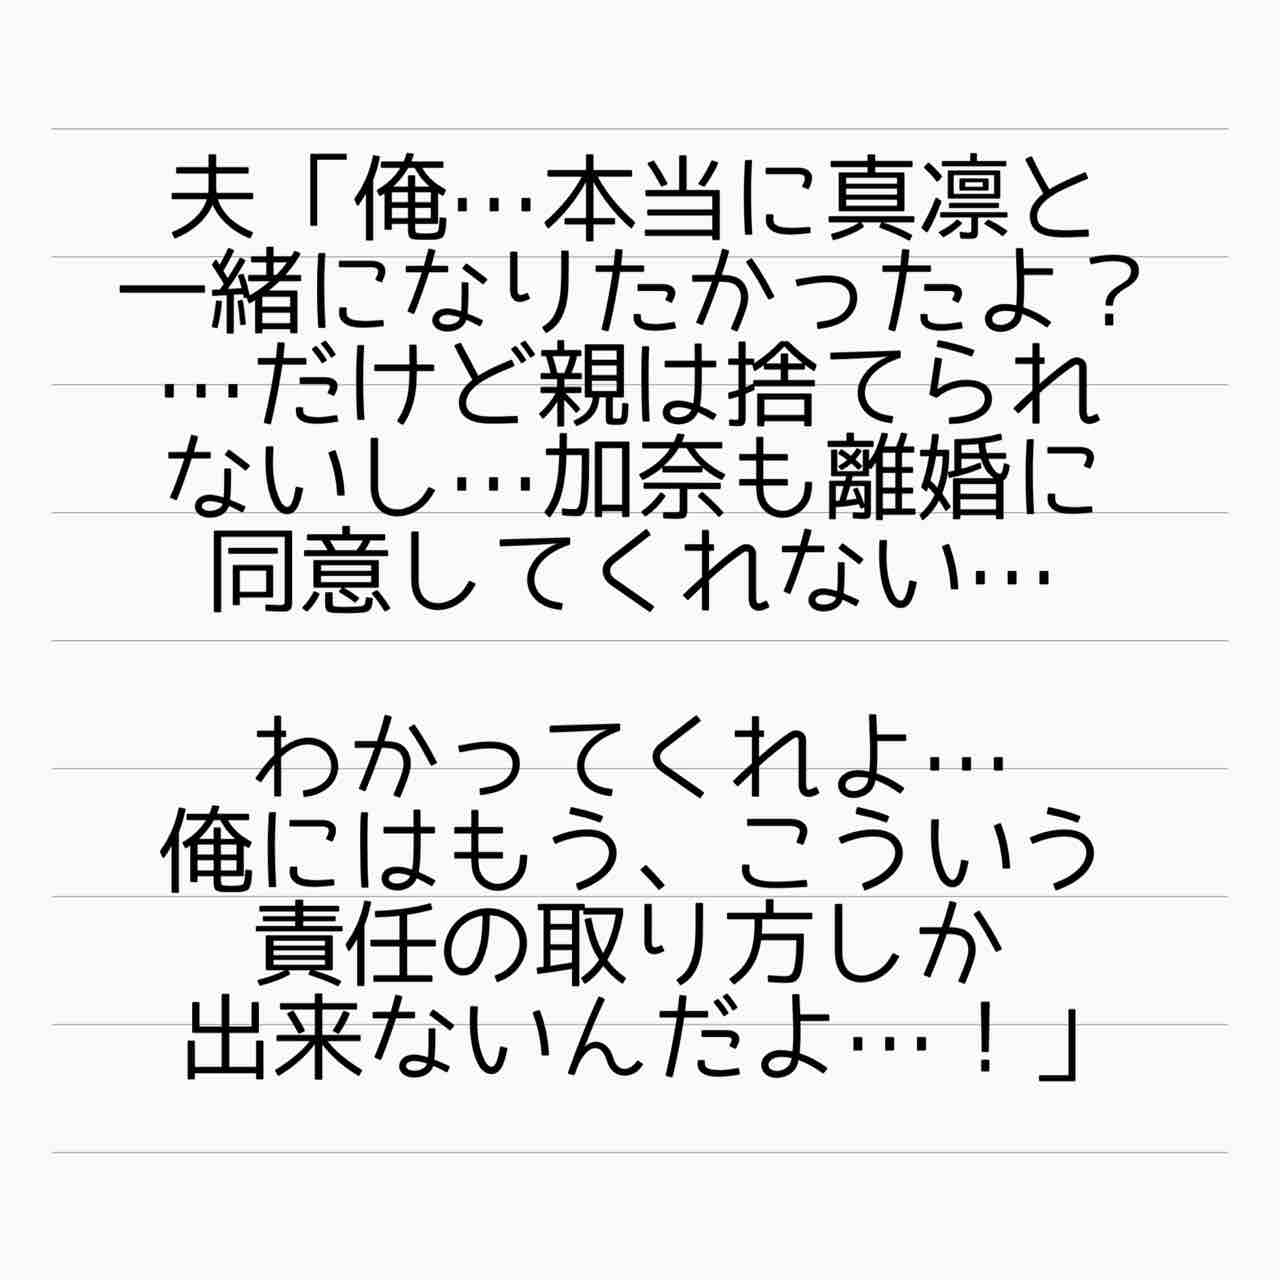 夫「俺…本当に真凛と
一緒になりたかったよ？
…だけど親は捨てられ
ないし…加奈も離婚に
同意してくれない…
わかってくれよ…
俺にはもう、こういう
責任の取り方しか
出来ないんだよ…！」